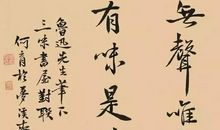 無聲唯
有味是
魯迅先生筆下
三味書屋對聯
於夢溪